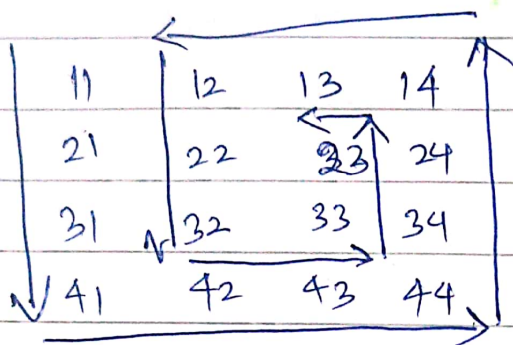 11 12 13 14
21 22 23 24
31 32 33 34
41 42 43 44